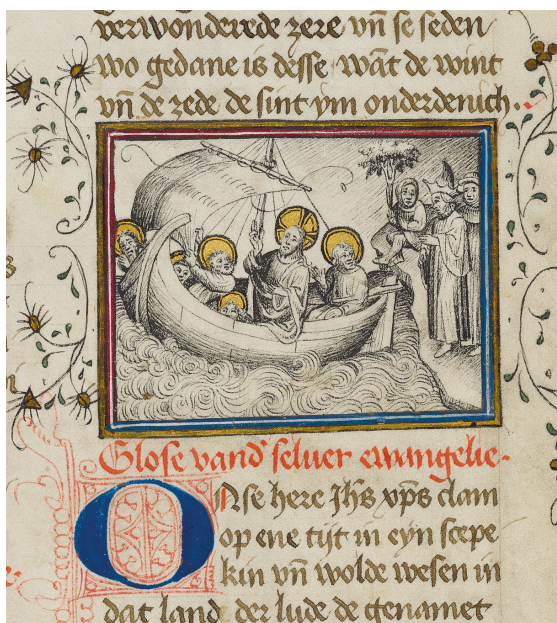 verwonderede zere vn̄ se seden
wo gedane is desse wāt de wint
vn̄ de zede de sint ym onderdenich.
Glose vand' seluer ewangelie.
ONse here Jhs xps clam
op ene tijt in eyn scepe
kin vn̄ wolde wesen in
dat land der lude de genamet